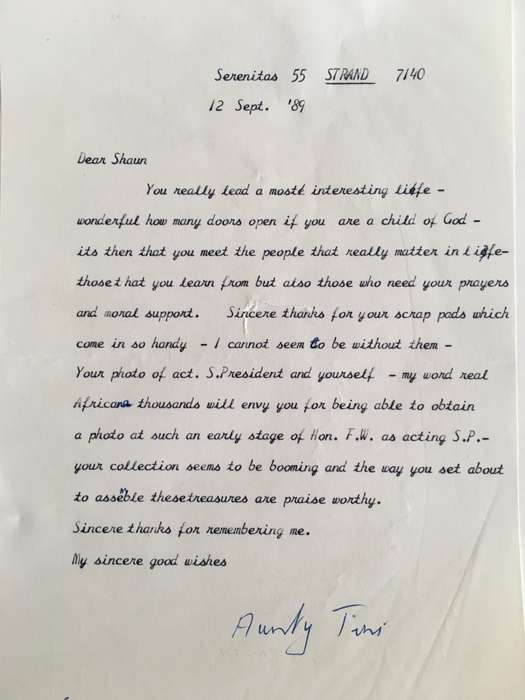 Serenitas 55 STRAND 7140
12 Sept. '89
Dear Shaun
You really lead a most interesting life -
wonderful how many doors open if you are a child of God -
its then that you meet the people that really matter in life-
those that you learn from but also those who need your prayers
and moral support. Sincere thanks for your scrap pads which
come in so handy - I cannot seem to be without them -
Your photo of act. S.President and yourself - my word real
Africana thousands will envy you for being able to obtain
a photo at such an early stage of Hon. F.W. as acting S.P.-
your collection seems to be booming and the way you set about
to assemble thesetreasures are praise worthy.
Sincere thanks for remembering me.
My sincere good wishes
Aunty Tini